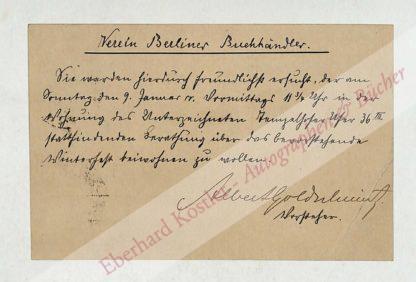 Verein Berliner Buchhändler.
Sie werden hierdurch freundlichst ersucht, der am
Sonntag den 9. Januar cr. Vormittags 11 ½ Uhr in der
Wohnung des Unterzeichneten Tempelhofer Ufer 36 III
stattfindenden Berathung über das bevorstehende
Winterfest beiwohnen zu wollen
Albert Goldschmidt
Vorsteher.
Eberhard Köstler - Autographen & Bücher